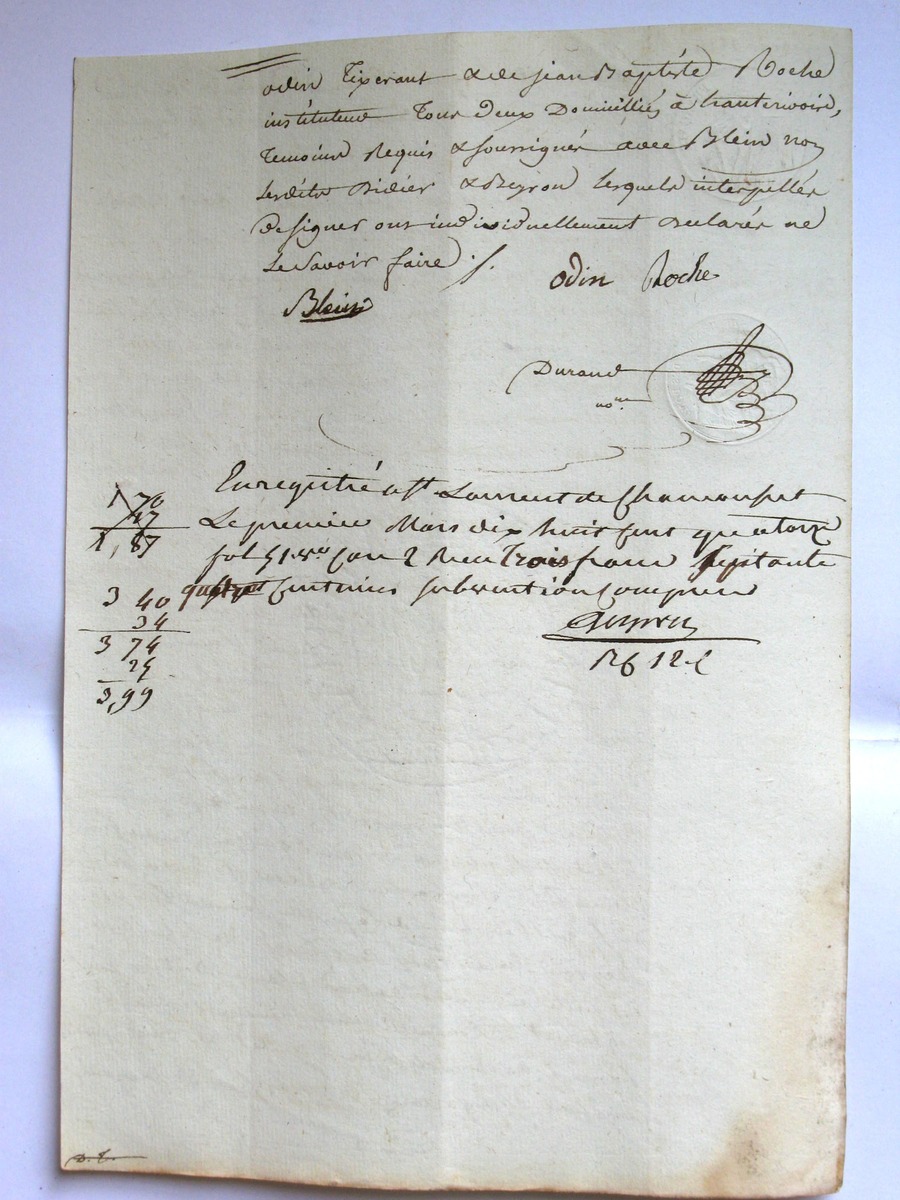 odin Tixerant & de jean Baptiste Roche
instituteur Tous Deux Domiciliés à hauterivoire,
Temoins Requis & soussignés avec Blein non
Lesdits Didier & Beyron lesquels interpellés
De signer ont individuellement Declarés ne
Le Savoir faire ./.
odin Roche
Blein
Durand
nore
Enregistré à St Laurent de Chamousset
Le premier Mars dix huit cent quatorze
fol 51 vo Reçu Trois francs Septante
quatre Centimes subvention Comprise
1 70
17
1,87
3 40
34
3 74
25
3,99
D. T.